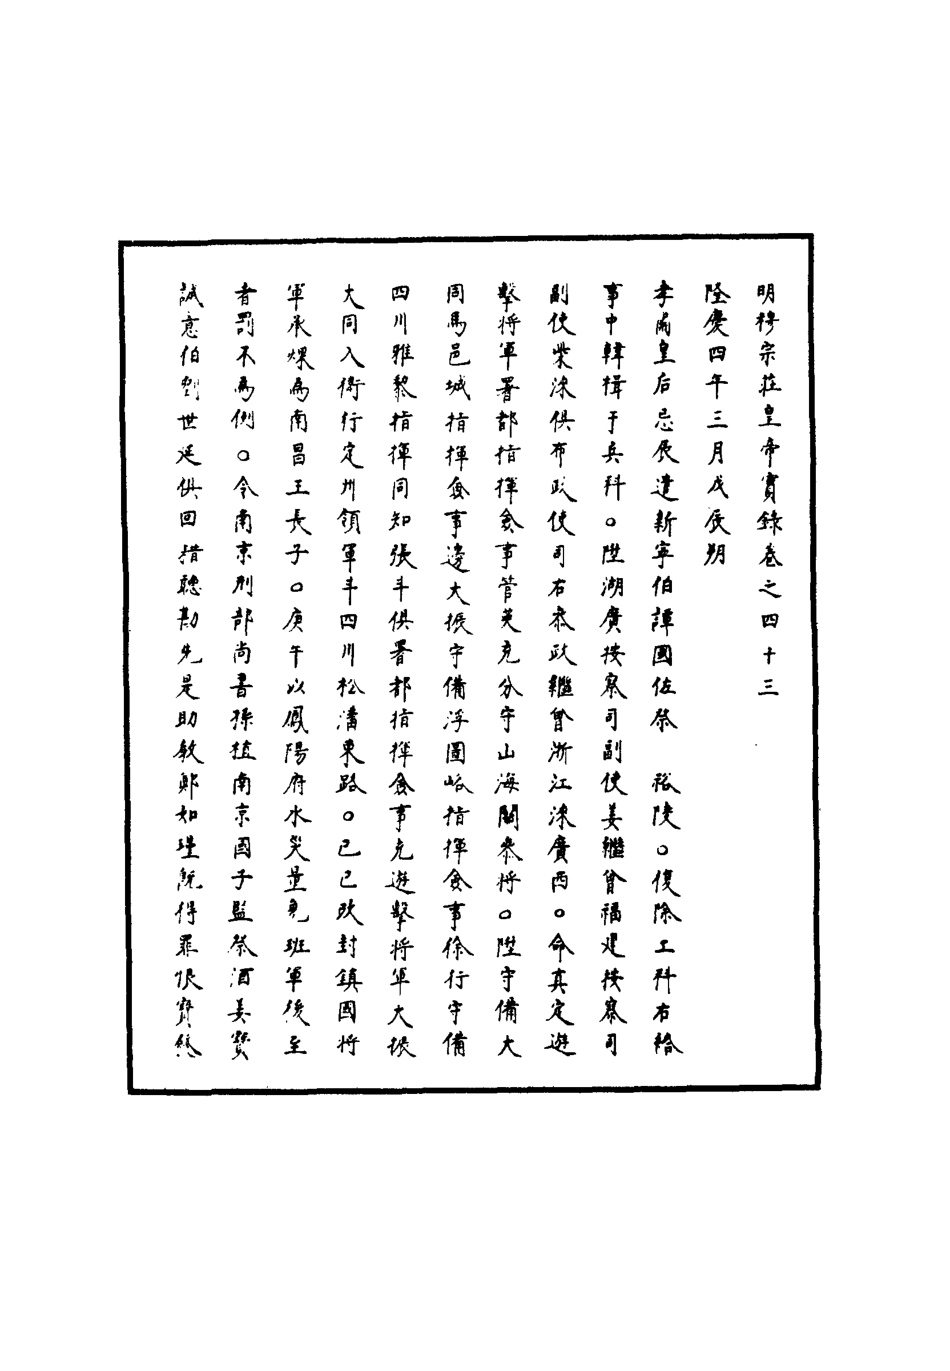 明穆宗莊皇帝實錄卷之四十三
隆慶四年三月戊辰朔
孝肅皇后忌辰遣新寧伯譚國佐祭　裕陵○復除工科右給
事中韓楫于兵科○陞湖廣按察司副使姜繼曾福建按察司
副使柴淶俱布政使司右叅政繼曾浙江淶廣西○命真定遊
擊將軍署都指揮僉事管英充分守山海關叅將○陞守備大
同馬邑城指揮僉事邊大振守備浮圖峪指揮僉事徐行守備
四川雅黎指揮同知張斗俱署都指揮僉事充遊擊將軍大振
大同入衛行定州領軍斗四川松潘東路○己巳改封鎮國將
軍承㸁為南昌王長子○庚午以鳳陽府水災量免班軍後至
者罰不為例○令南京刑部尚書孫植南京國子監祭酒姜寶
誠意伯劉世延俱回籍聽勘先是助教鄭如瑾既得罪恨寶